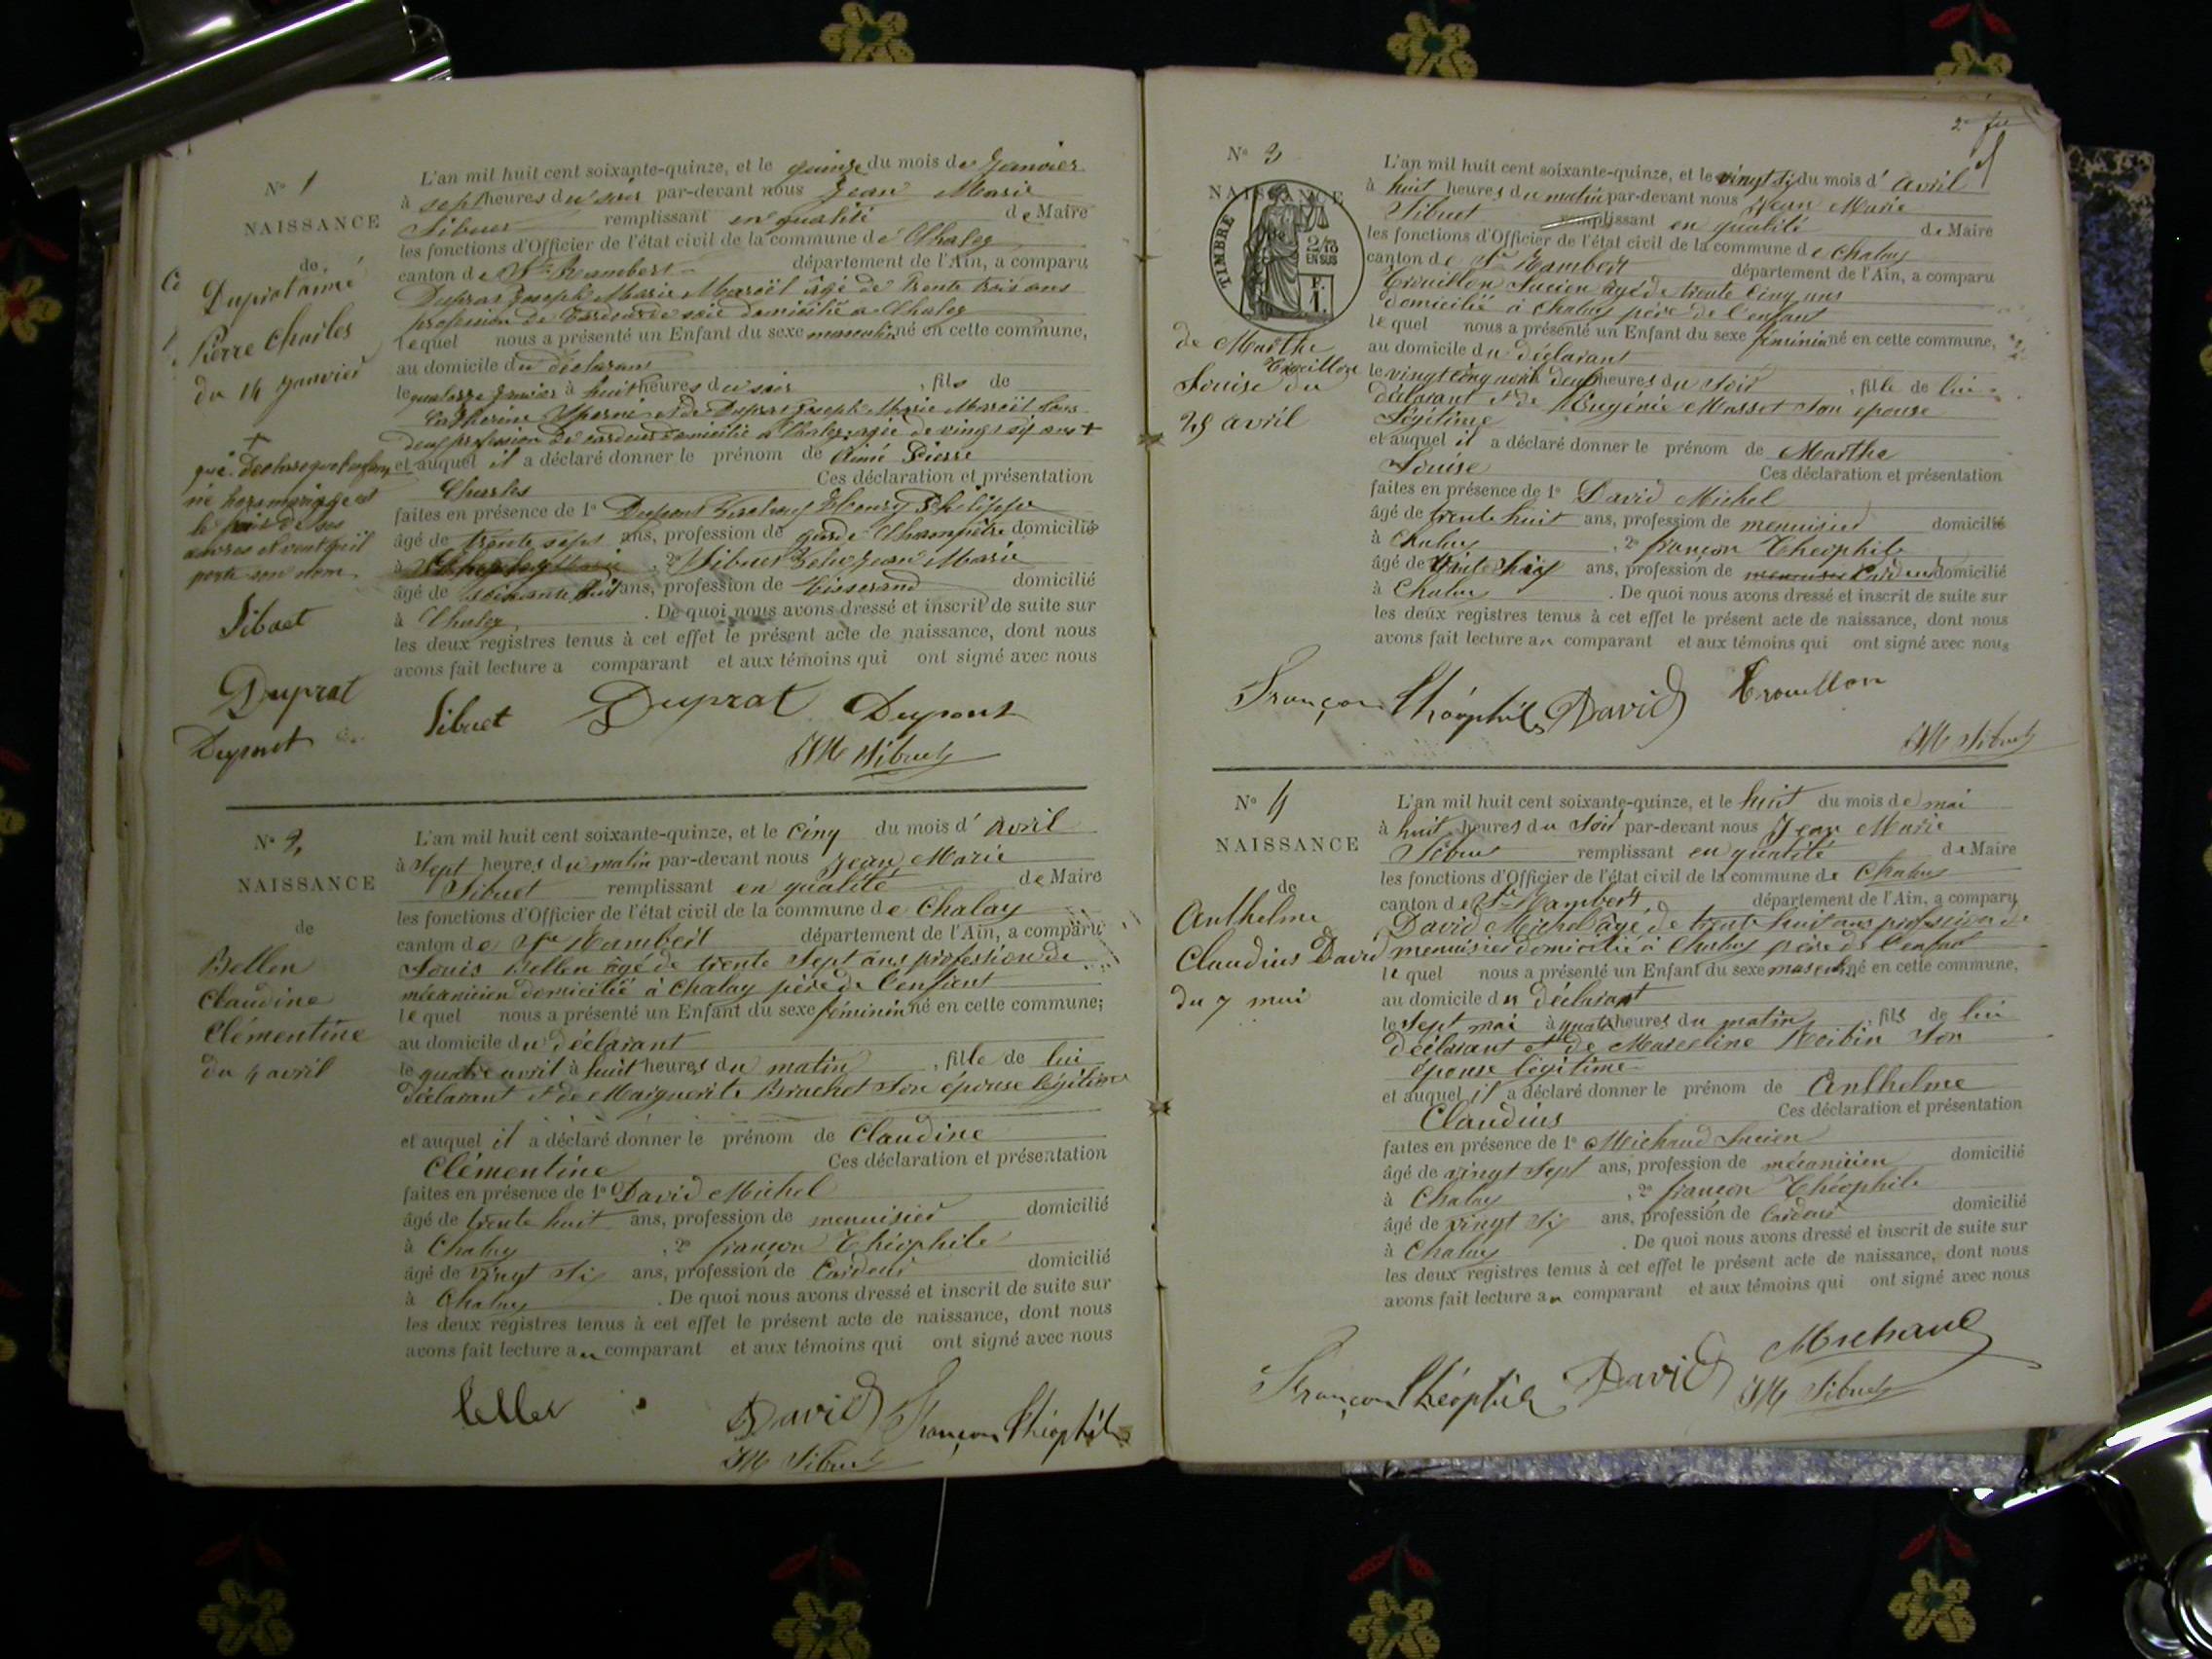 N° 1
NAISSANCE
de
Duprat aimé
Pierre Charles
du 14 janvier
L'an mil huit cent soixante-quinze, et le quinze du mois de Janvier
à sept heures du soir par-devant nous Jean Marie
Sibuet remplissant en qualité de Maire
les fonctions d'Officier de l'état civil de la commune de Chaley
canton de St Rambert département de l'Ain, a comparu
Duprat Joseph Marie Marcël âgé de trente trois ans
profession de Cardeur de soie domicilié à Chaley
lequel nous a présenté un Enfant du sexe masculin né en cette commune,
au domicile du déclarant
le quatorze Janvier à huit heures du soir , fils de
Catherine et de Duprat Joseph Marie Marcël tous
deux profession de cardeurs domicilié à Chaley agée de vingt six ans +
et auquel il a déclaré donner le prénom de Aimé Pierre
Charles Ces déclaration et présentation
faites en présence de 1° Dupont Henry Philippe
âgé de trente sept ans, profession de garde Champêtre domicilié
à , 2° Sibuet Jean Marie
âgé de soixante huit ans, profession de Tisserand domicilié
à Chaley . De quoi nous avons dressé et inscrit de suite sur
les deux registres tenus à cet effet le présent acte de naissance, dont nous
avons fait lecture a comparant et aux témoins qui ont signé avec nous
+
qui Déclare que l'enfant
né hors mariage est
le fruit de ses
œuvres et veut qu'il
porte son nom
Sibuet
Duprat
Dupont
Sibuet Duprat Dupont
JM Sibuet
N° 2
NAISSANCE
de
Bellen
Claudine
Clémentine
du 4 avril
L'an mil huit cent soixante-quinze, et le cinq du mois d' Avril
à Sept heures du matin par-devant nous Jean Marie
Sibuet remplissant en qualité de Maire
les fonctions d'Officier de l'état civil de la commune de Chaley
canton de St Rambert département de l'Ain, a comparu
Louis Bellen âgé de trente Sept ans profession de
mécanicien domicilié à Chaley père de l'enfant
lequel nous a présenté un Enfant du sexe féminin né en cette commune;
au domicile du déclarant
le quatre avril à huit heures du matin , fille de lui
déclarant et de Marguerite Brachet Son épouse légitime
et auquel il a déclaré donner le prénom de Claudine
Clémentine Ces déclaration et présentation
faites en présence de 1° David Michel
âgé de trente huit ans, profession de menuisier domicilié
à Chaley , 2° françon Théophile
âgé de vingt Six ans, profession de Cardeur domicilié
à Chaley . De quoi nous avons dressé et inscrit de suite sur
les deux registres tenus à cet effet le présent acte de naissance, dont nous
avons fait lecture au comparant et aux témoins qui ont signé avec nous
David Françon Théophile
JM Sibuet
2e
N° 3
NAISSANCE
TIMBRE
2/10
EN SUS
F.
1.
de Marthe
Trouillon
Louise du
25 avril
L'an mil huit cent soixante-quinze, et le vingt six du mois d' Avril
à huit heures du matin par-devant nous Jean Marie
Sibuet remplissant en qualité de Maire
les fonctions d'Officier de l'état civil de la commune de Chaley
canton de St Rambert département de l'Ain, a comparu
Trouillon Lucien âgé de trente Cinq ans
domicilié à Chaley père de l'enfant
lequel nous a présenté un Enfant du sexe féminin né en cette commune,
au domicile du déclarant
le vingt cinq avril à deux heures du Soir , fille de lui
déclarant et de Eugénie Masset Son épouse
Légitime
et auquel il a déclaré donner le prénom de Marthe
Louise Ces déclaration et présentation
faites en présence de 1° David Michel
âgé de trente huit ans, profession de menuisier domicilié
à Chaley , 2° françon Théophile
âgé de ans, profession de Cardeur domicilié
à Chaley . De quoi nous avons dressé et inscrit de suite sur
les deux registres tenus à cet effet le présent acte de naissance, dont nous
avons fait lecture au comparant et aux témoins qui ont signé avec nous
Françon Théophile David Trouillon
JM Sibuet
N° 4
NAISSANCE
de
Anthelme
Claudius David
du 7 mai
L'an mil huit cent soixante-quinze, et le huit du mois de mai
à huit heures du Soir par-devant nous Jean Marie
Sibuet remplissant en qualité de Maire
les fonctions d'Officier de l'état civil de la commune de Chaley
canton de St Rambert département de l'Ain, a comparu
David Michel âgé de trente huit ans profession de
menuisier domicilié à Chaley père de l'enfant
lequel nous a présenté un Enfant du sexe masculin né en cette commune,
au domicile du déclarant
le Sept mai à quatre heures du matin , fils de lui
déclarant et de Marceline Son
épouse légitime
et auquel il a déclaré donner le prénom de Anthelme
Claudius Ces déclaration et présentation
faites en présence de 1° Michaud Lucien
âgé de vingt Sept ans, profession de mécanicien domicilié
à Chaley , 2° françon Théophile
âgé de vingt Six ans, profession de Cardeur domicilié
à Chaley . De quoi nous avons dressé et inscrit de suite sur
les deux registres tenus à cet effet le présent acte de naissance, dont nous
avons fait lecture au comparant et aux témoins qui ont signé avec nous
Françon Théophile David Michaud
JM Sibuet